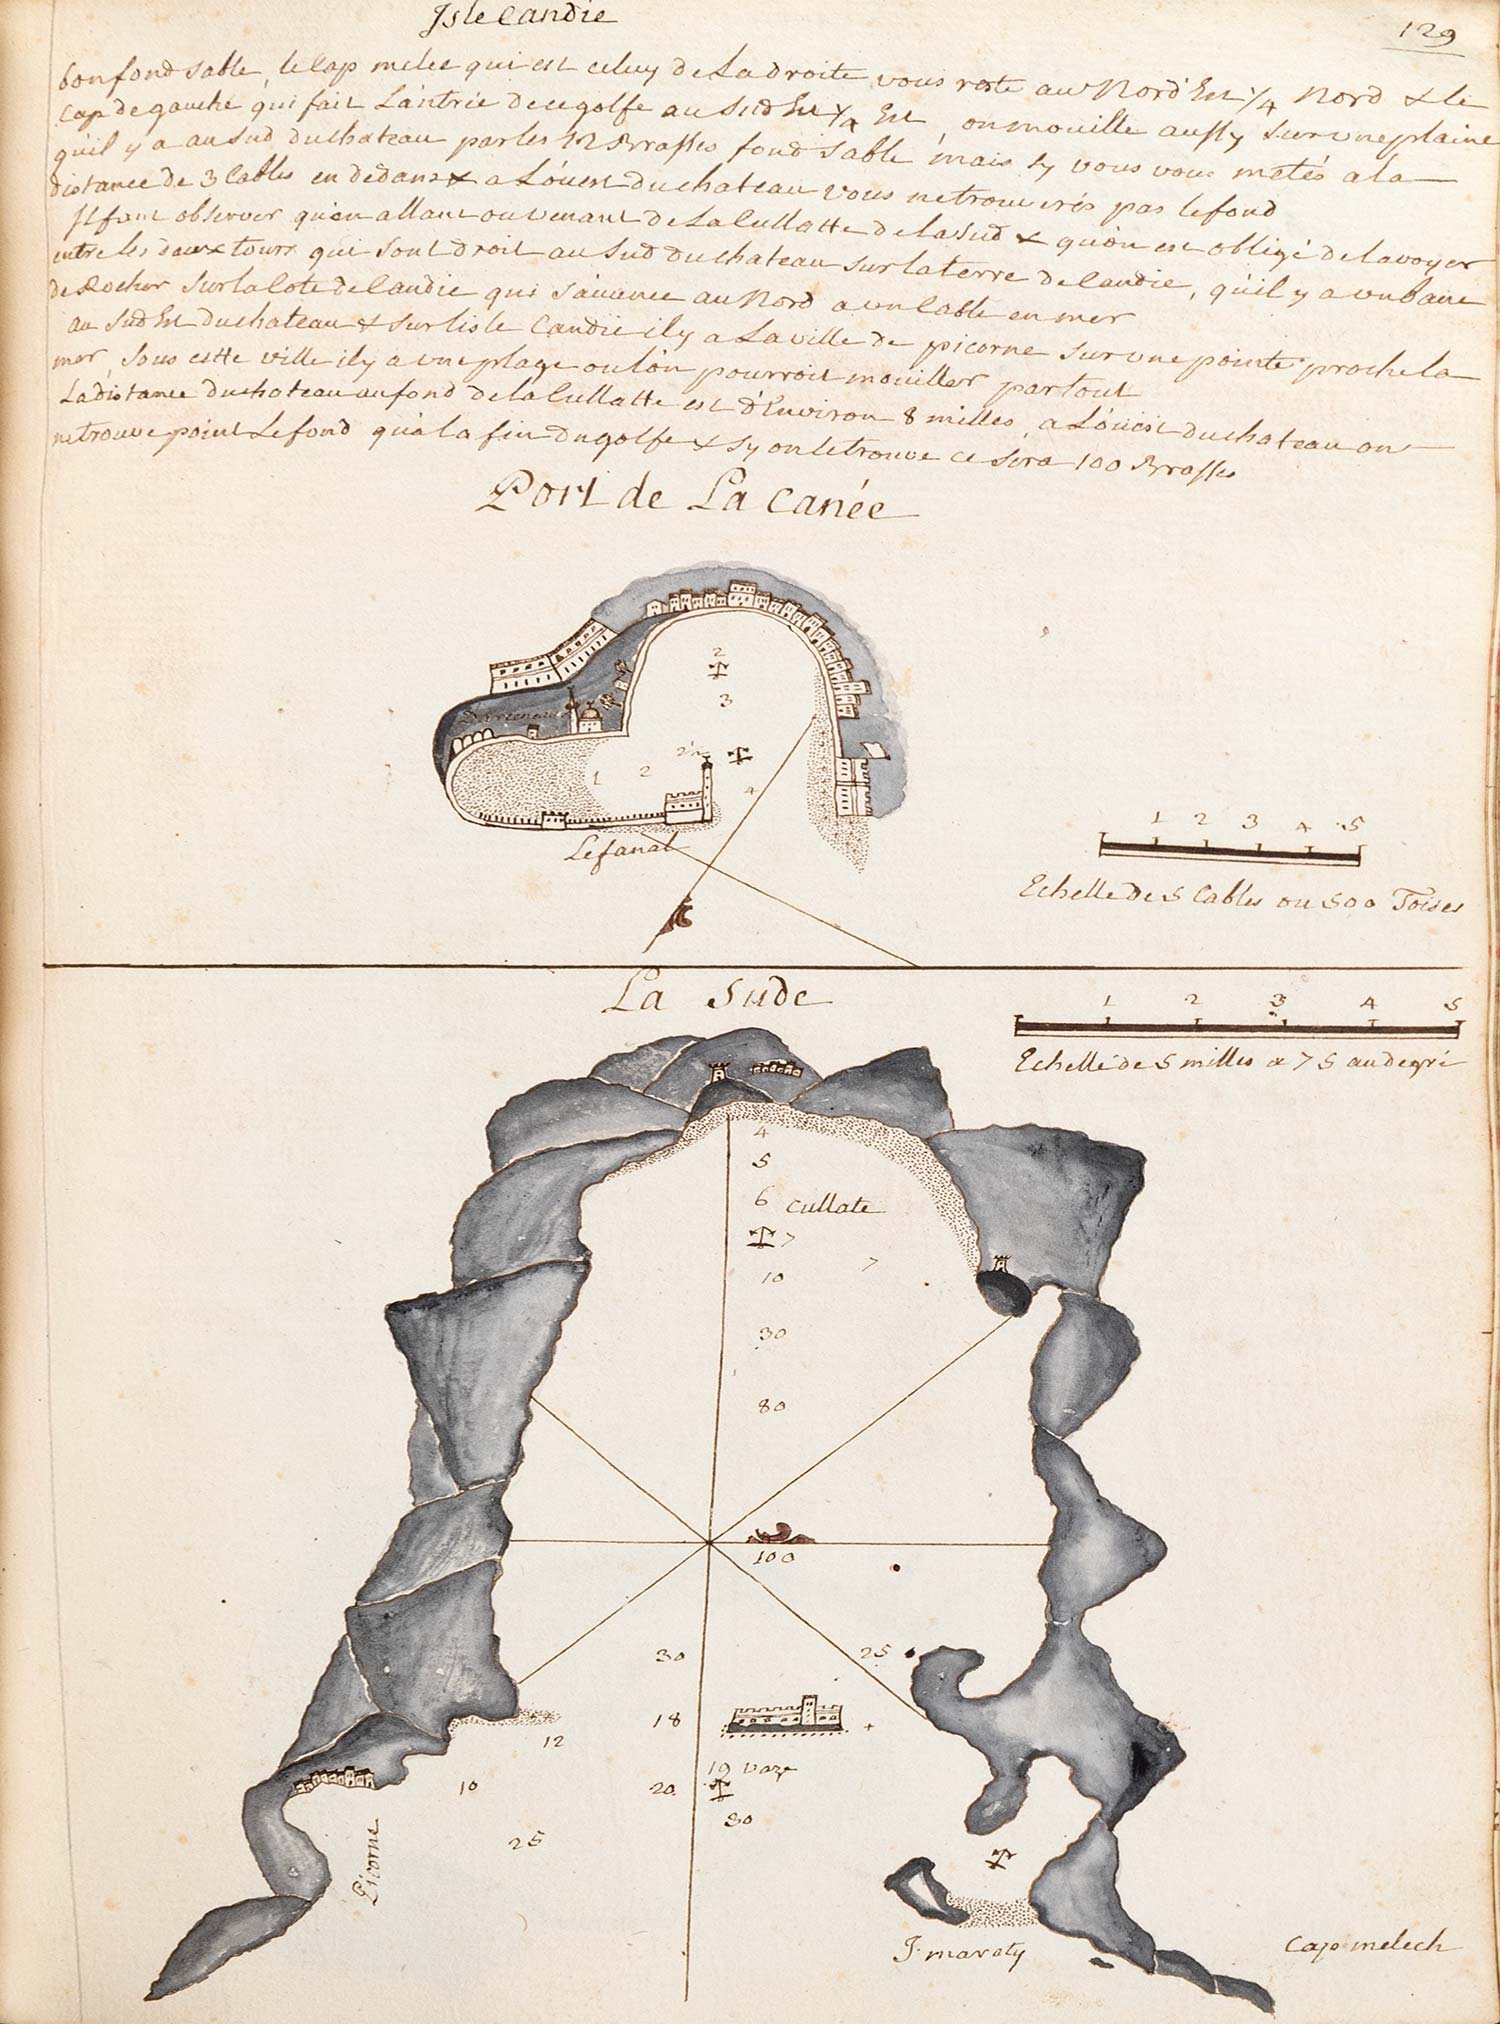 Isle Candie
129
bon fond sable, le Cap melec qui est celuy de La droite vous reste au Nord Est 1/4 Nord & le
Cap de gauche qui fait L'antrée de ce golfe au Sud Est 1/4 Est, on mouille aussy sur une plaine
qu'il y a au Sud du chateau par les 12 Brasses fond sable mais sy vous vous metés a la
distance de 3 Cables en dedans & a L'ouest du chateau vous ne trouverés pas le fond
Il faut observer qu'en allant ou venant de La Cullatte de la Sud & qu'on est obligé de lavoyer
entre les deux tours qui sont droit au Sud du chateau sur la terre de Candie, qu'il y a un banc
de Rocher sur la Cote de Candie qui s'avance au Nord a un Cable en mer
au Sud Est du chateau & sur l'isle Candie il y a La ville de picorne sur une pointe proche la
mer, sous cette ville il y a une plage ou l'on pourroit mouiller partout
La distance du chateau au fond de la Cullatte est d'Environ 8 milles, a L'ouest du chateau on
ne trouve point Le fond qu'a la fin du golfe & sy on le trouve ce sera 100 Brasses
Port de La Canée
2
3
Darcenau
1 2 2½
4
Le fanal
1 2 3 4 5
Echelle de 5 Cables ou 500 Toises
La Sude
1 2 3 4 5
Echelle de 5 milles a 75 au degré
4
5
6 Cullate
7
7
10
30
80
100
30
25
18
12
19 vaze
10
20
30
25
Picorne
I. maraty
Cap melech